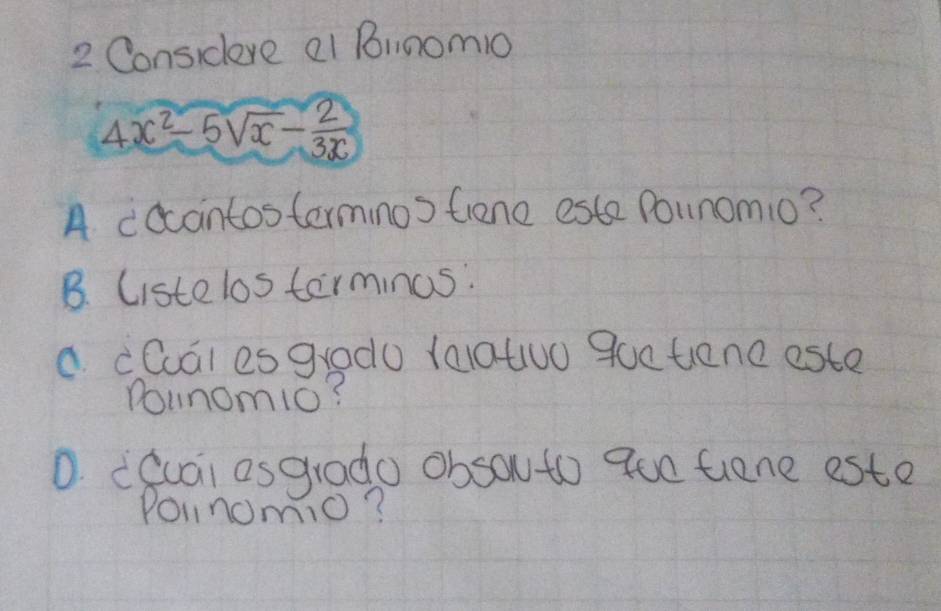 2. Considere el Polinomio
4x² - 5√x - 2/3x
A. ¿cuántos terminos tiene este Polinomio?
B. Liste los términos:
C. ¿Cuál es grado relativo que tiene este
Polinomio?
D. ¿Cuál es grado absoluto que tiene este
Polinomio?